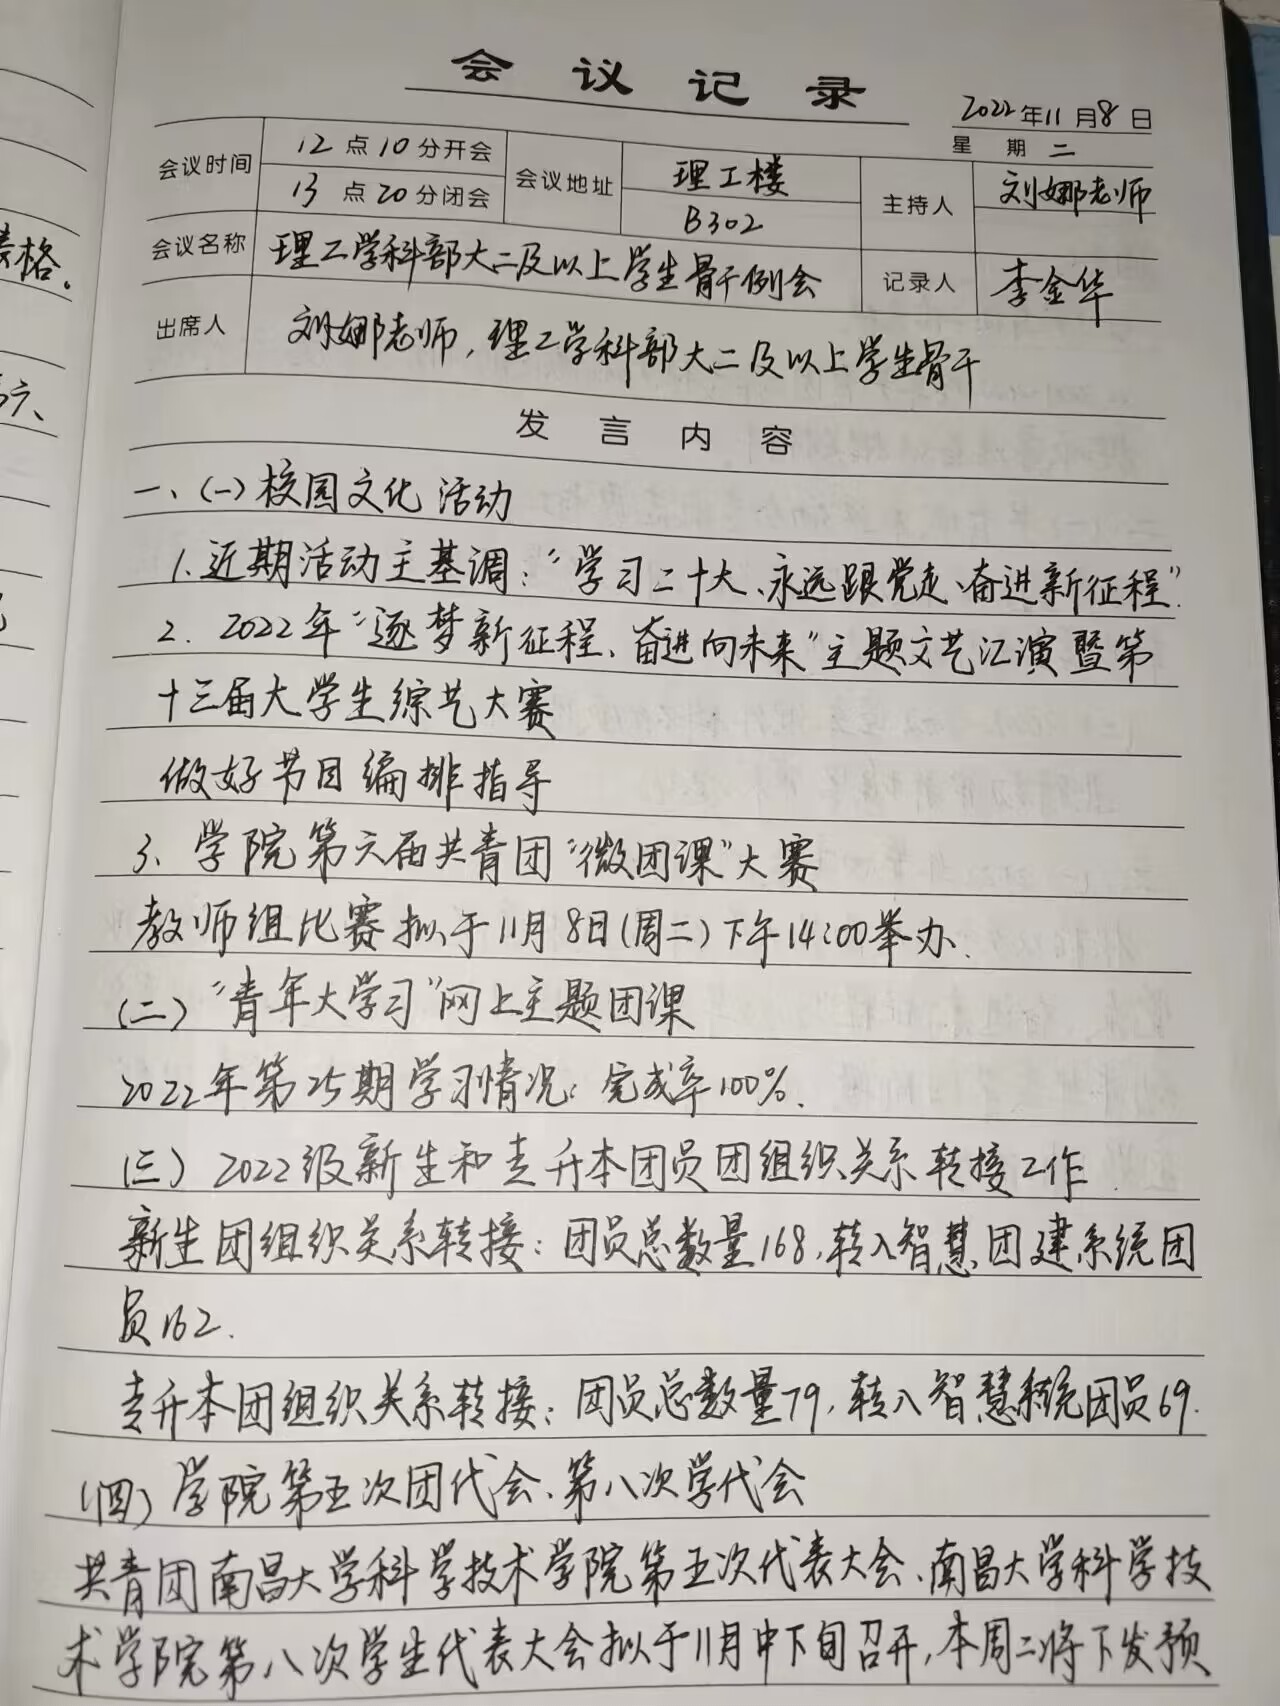 会议记录
2022年11月8日
星期二
会议时间 12点10分开会 会议地址 理工楼 主持人 刘娜老师
13点20分闭会 B302
会议名称 理工学科部大二及以上学生骨干例会 记录人 李金华
出席人 刘娜老师，理工学科部大二及以上学生骨干
发言内容
一、(一)校园文化活动
1.近期活动主基调："学习二十大、永远跟党走、奋进新征程".
2.2022年"逐梦新征程、奋进向未来"主题文艺汇演暨第
十三届大学生综艺大赛
做好节目编排指导
3、学院第六届共青团"微团课"大赛
教师组比赛拟于11月8日(周二)下午14:00举办.
(二)"青年大学习"网上主题团课
2022年第25期学习情况：完成率100%.
(三)2022级新生和专升本团员团组织关系转接工作.
新生团组织关系转接：团员总数量168,转入智慧团建系统团
员162.
专升本团组织关系转接：团员总数量79,转入智慧系统团员69.
(四)学院第五次团代会、第八次学代会
共青团南昌大学科学技术学院第五次代表大会、南昌大学科学技
术学院第八次学生代表大会拟于11月中下旬召开,本周二将下发预
格。
六、